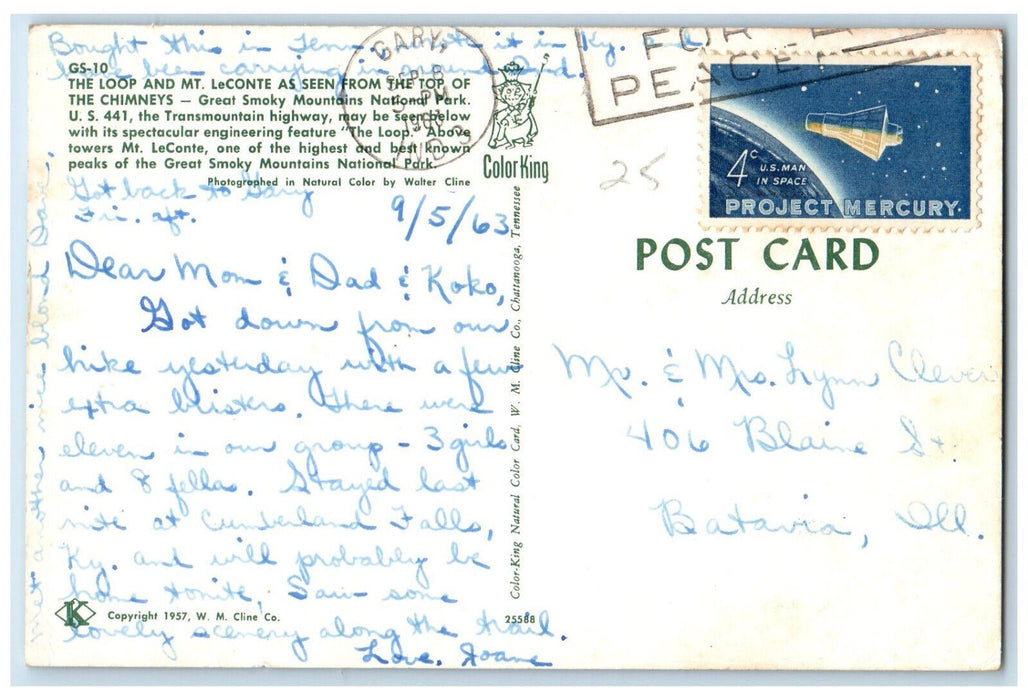 Bought this in Tenn., wrote it in Ky. and
have been carrying it around Ind.
GS-10
THE LOOP AND MT. LeCONTE AS SEEN FROM THE TOP OF
THE CHIMNEYS — Great Smoky Mountains National Park.
U. S. 441, the Transmountain highway, may be seen below
with its spectacular engineering feature "The Loop." Above
towers Mt. LeConte, one of the highest and best known
peaks of the Great Smoky Mountains National Park.
Photographed in Natural Color by Walter Cline
Color King
Got back to Gary
Fri. aft.
9/5/63
Dear Mom & Dad & Koko,
Got down from our
hike yesterday with a few
extra blisters. There were
eleven in our group - 3 girls
and 8 fellas. Stayed last
nite at Cumberland Falls,
Ky. and will probably be
home tonite. Saw some
lovely scenery along the trail.
Love, Joane
met another nice blond Dave.
K
Copyright 1957, W. M. Cline Co.
25588
Color-King Natural Color Card, W. M. Cline Co., Chattanooga, Tennessee
GARY,
SEP 8
PM
IND.
FOR
PEACE
4c U.S. MAN
IN SPACE
PROJECT MERCURY
25
POST CARD
Address
Mr. & Mrs. Lynn Clever
406 Blaine St.
Batavia, Ill.